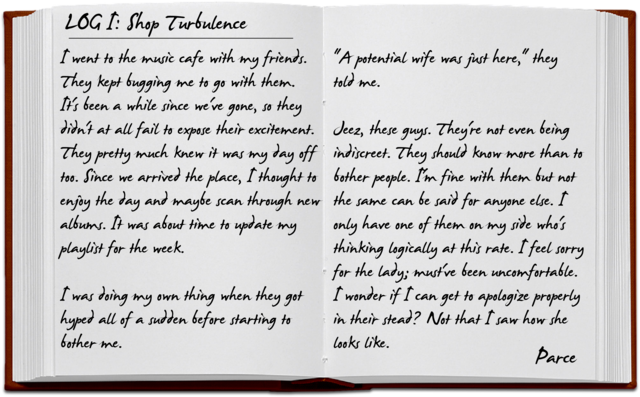 LOG I: Shop Turbulence
I went to the music cafe with my friends.
They kept bugging me to go with them.
It's been a while since we've gone, so they
didn't at all fail to expose their excitement.
They pretty much knew it was my day off
too. Since we arrived the place, I thought to
enjoy the day and maybe scan through new
albums. It was about time to update my
playlist for the week.
I was doing my own thing when they got
hyped all of a sudden before starting to
bother me.
"A potential wife was just here," they
told me.
Jeez, these guys. They're not even being
indiscreet. They should know more than to
bother people. I'm fine with them but not
the same can be said for anyone else. I
only have one of them on my side who's
thinking logically at this rate. I feel sorry
for the lady; must've been uncomfortable.
I wonder if I can get to apologize properly
in their stead? Not that I saw how she
looks like.
Parce